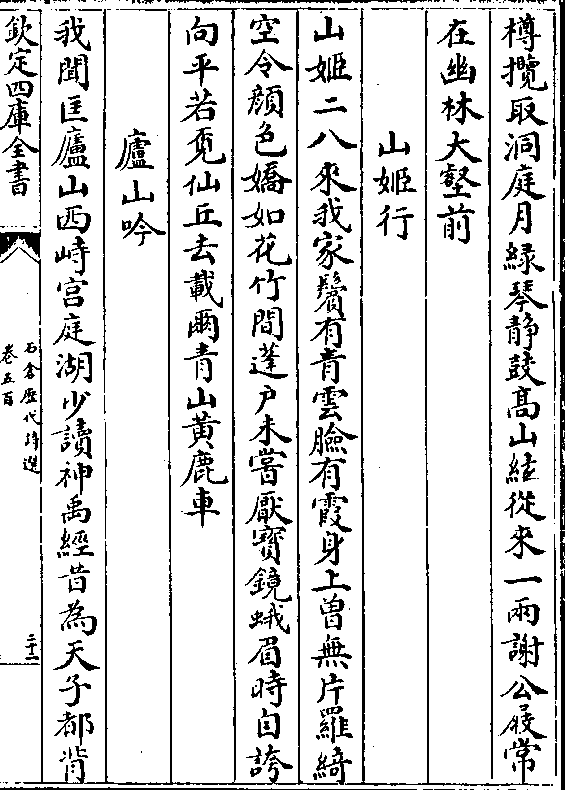 樽攬取洞庭月緑琴静鼓髙山絃從來一兩謝公屐常
在幽林大壑前
山姬行
山姬二八來我家鬢有青雲臉有霞身上曽無片羅綺
空令顔色嬌如花竹間蓬戶未嘗厭寳鏡蛾眉時自誇
向平若覓仙丘去載爾青山黄鹿車
廬山吟
我聞匡廬山西峙宫庭湖少讀神禹經昔為天子都背
欽定四庫全書
石倉歴代詩選
卷五百
二十二